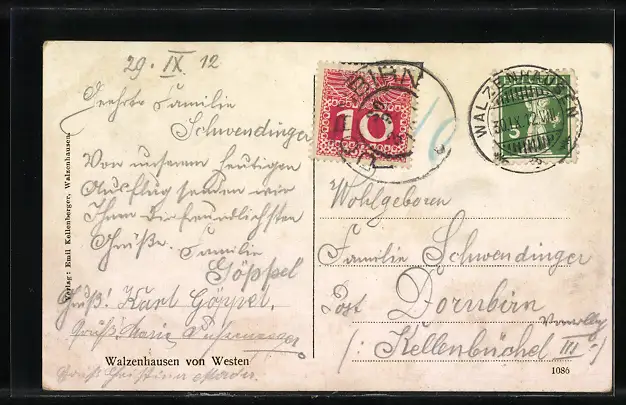 29. IX. 12
Geehrte Familie
Schwendinger
Von unserem heutigen
Ausflug senden wir
Ihnen die freundlichsten
Grüße. Familie
Göppel
Gruß! Karl Göppel.
Gruß. Maria
Walzenhausen von Westen
Verlag: Emil Kellenberger, Walzenhausen.
10
DORNBIRN
10
WALZENHAUSEN
5
Wohlgeboren
Familie Schwendinger
Post Dornbirn
(: Kellenbüchel III :)
1086